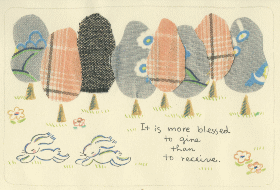 It is more blessed
to give
than
to receive.